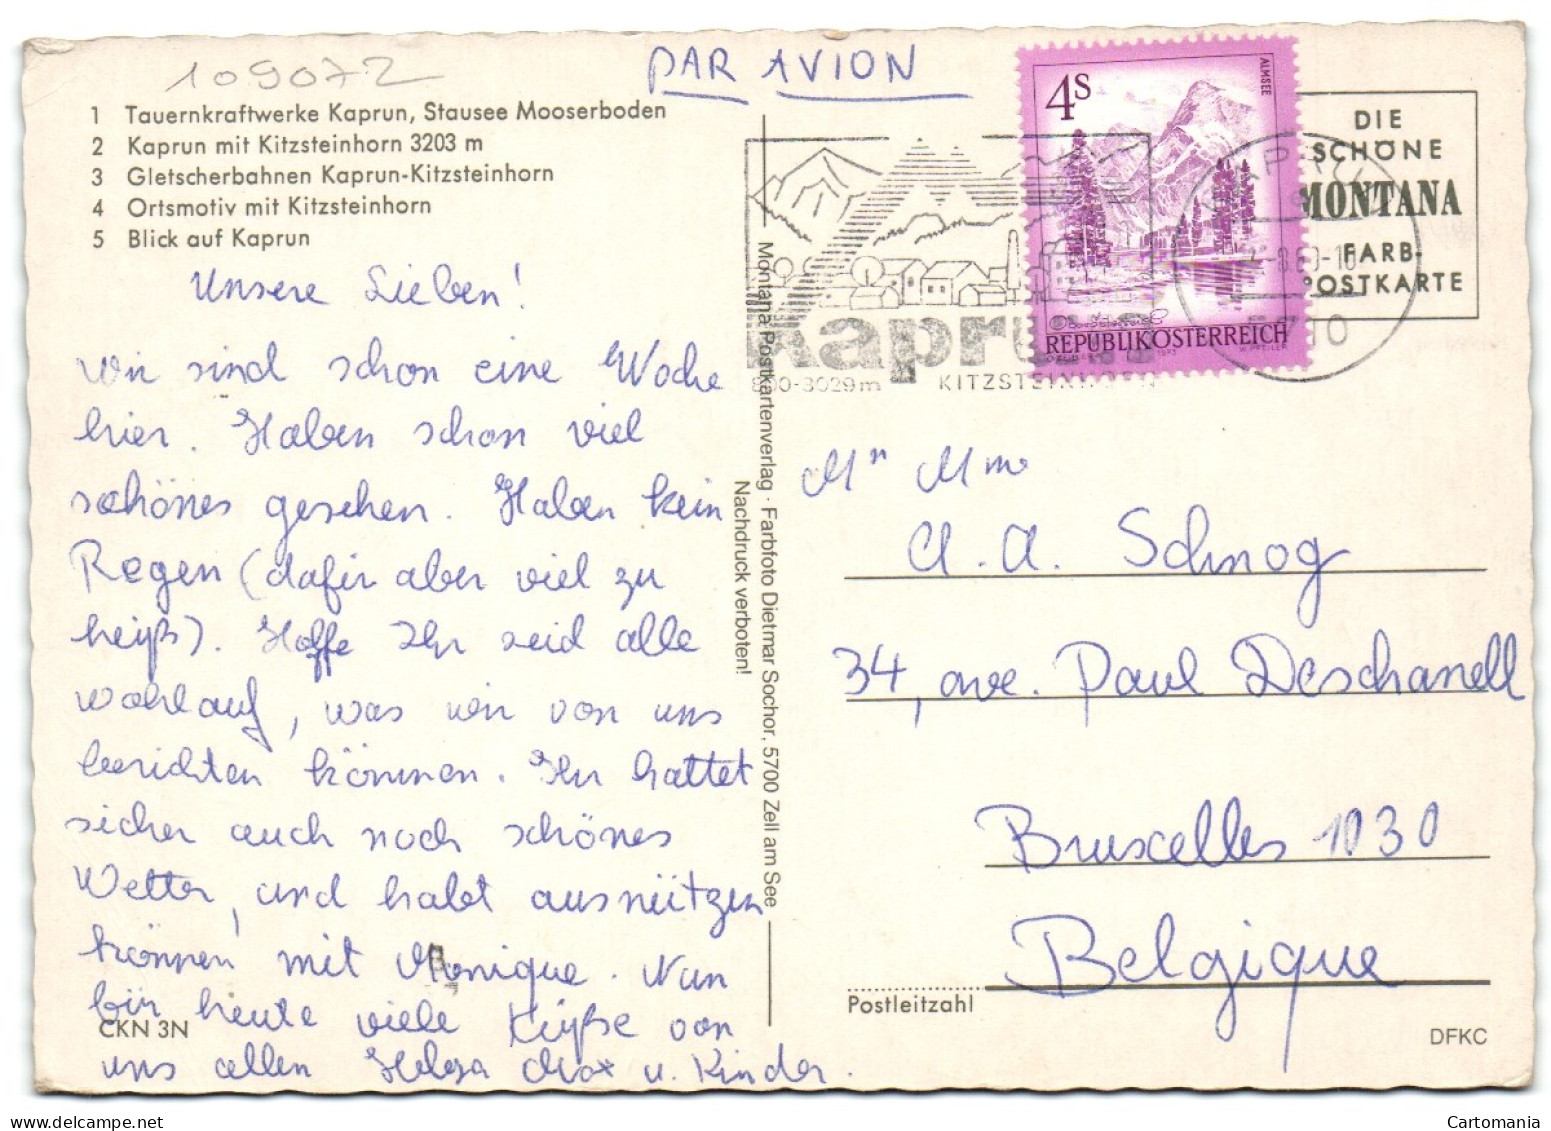 109072
PAR AVION
1 Tauernkraftwerke Kaprun, Stausee Mooserboden
2 Kaprun mit Kitzsteinhorn 3203 m
3 Gletscherbahnen Kaprun-Kitzsteinhorn
4 Ortsmotiv mit Kitzsteinhorn
5 Blick auf Kaprun
Unsere Lieben!
Wir sind schon eine Woche
hier. Haben schon viel
schönes gesehen. Haben kein
Regen (dafür aber viel zu
heiß). Hoffe Ihr seid alle
wohlauf, was wir von uns
berichten können. Ihr hattet
sicher auch noch schönes
Wetter, und habt ausnützen
können mit Monique. Nun
für heute viele Küße von
uns allen Helga Max u. Kinder.
CKN 3N
Montana Postkartenverlag · Farbfoto Dietmar Sochor, 5700 Zell am See
Nachdruck verboten!
4S
ALMSEE
REPUBLIK ÖSTERREICH
1973
W. PFEILER
Kaprun
800-3029m KITZSTEINHORN
DIE
SCHÖNE
MONTANA
FARB-
POSTKARTE
Mr Mme
A. A. Schnog
34, ave. Paul Deschanell
Bruxelles 1030
Belgique
Postleitzahl
DFKC
Cartomania